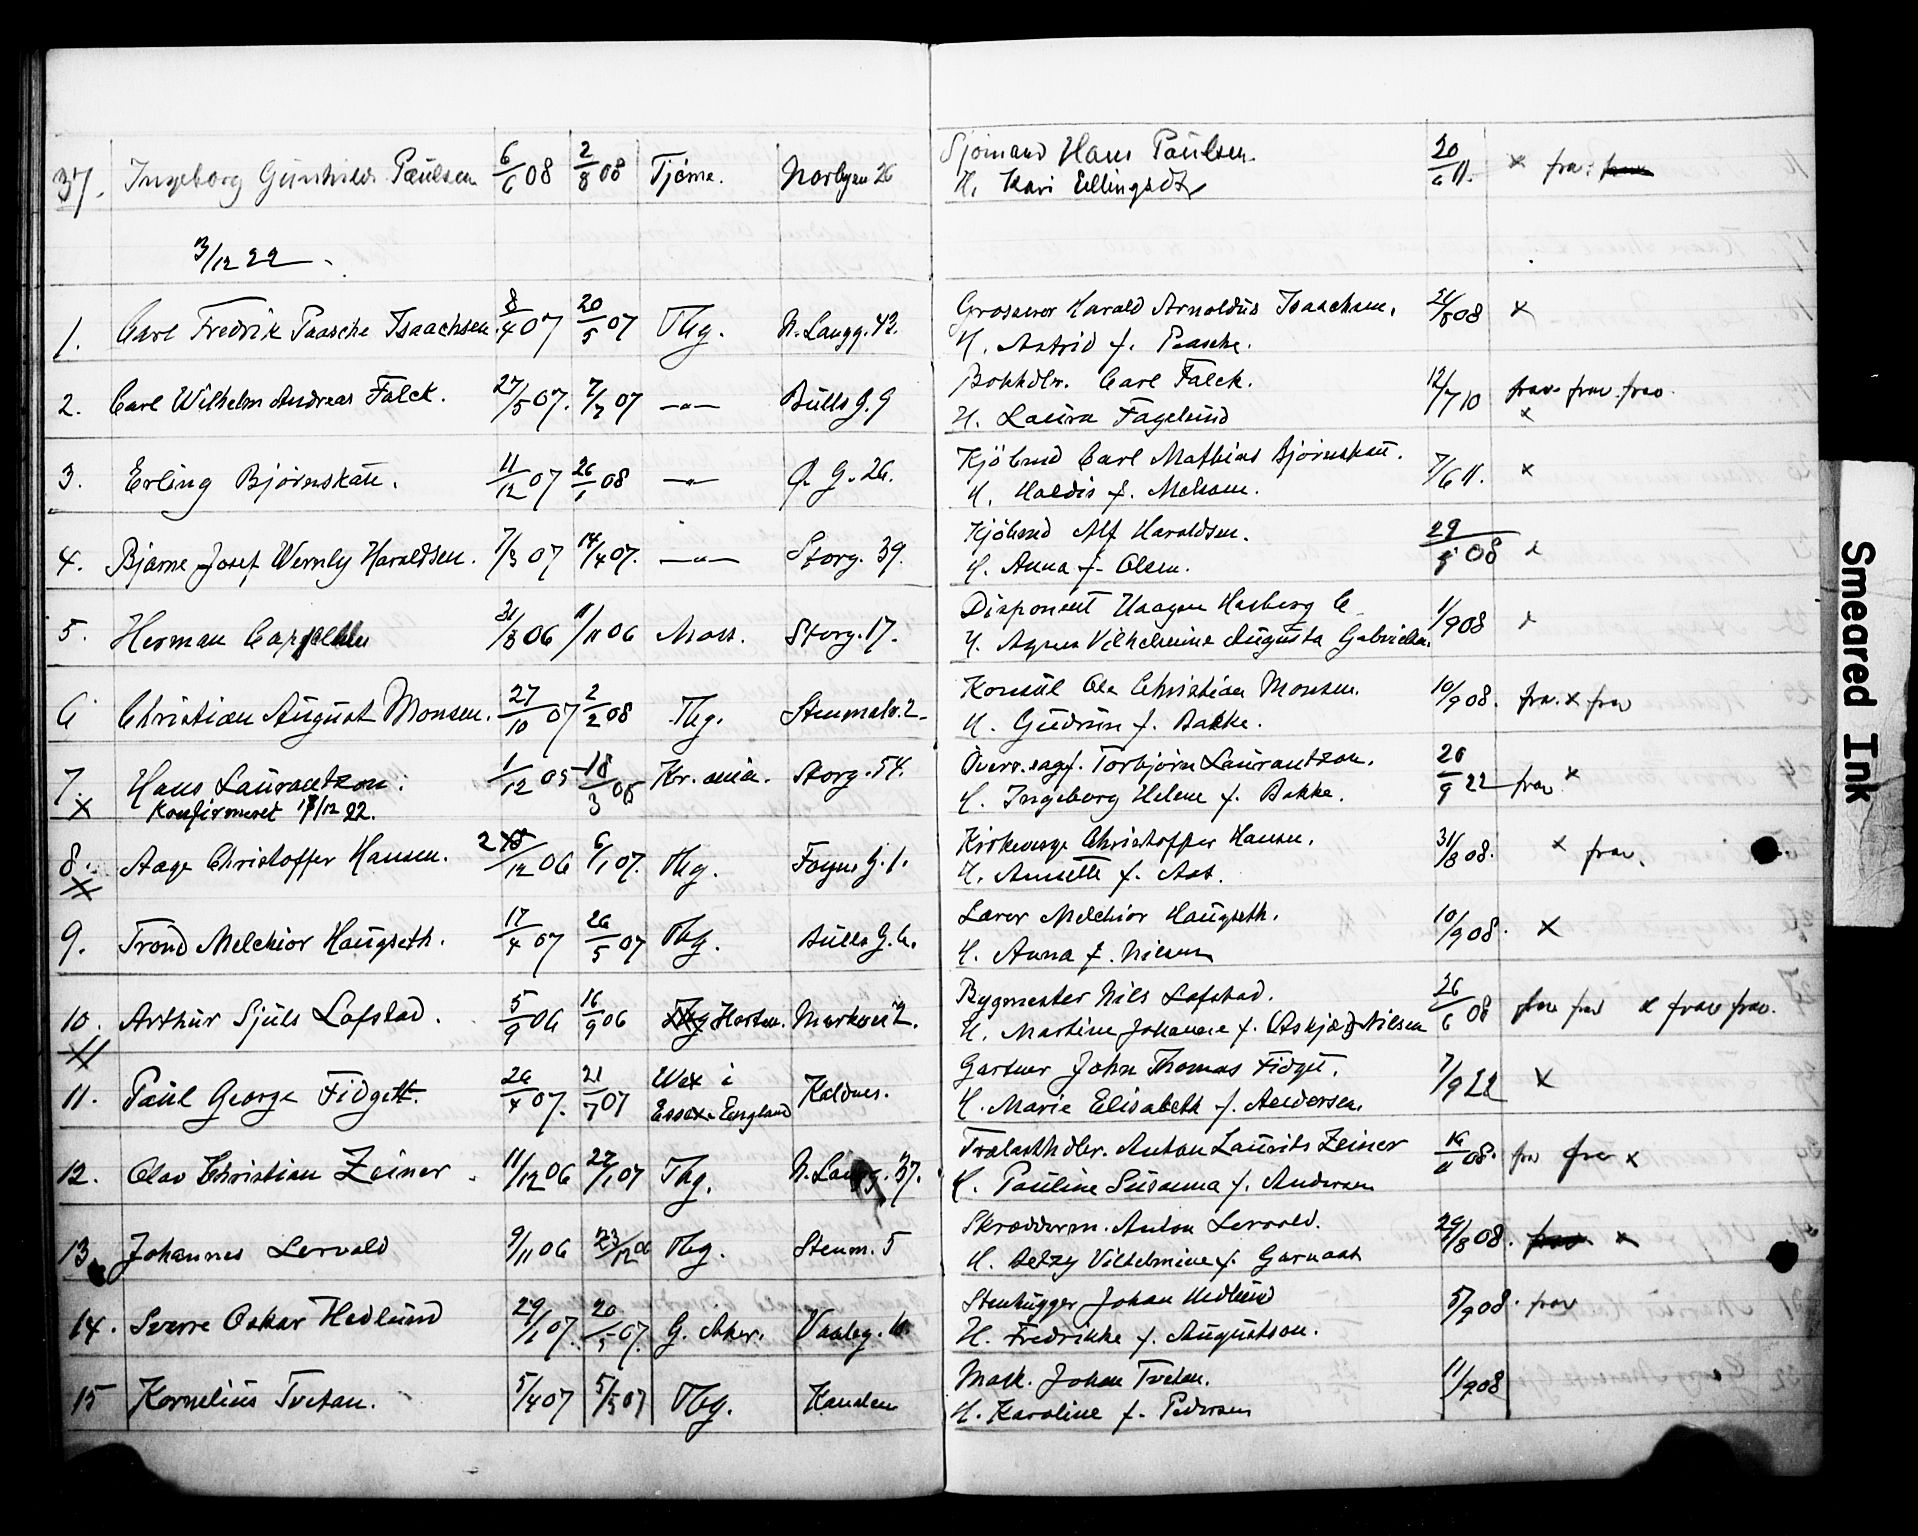 37. Ingeborg Gunhild Paulsen 6/6 08 2/8 08 Tjøme. Norbyen 26 Sjømand Hans Paulsen. 20/6 11. x frav:
H. Kari Ellingsdtr
3/12 22
1. Carl Fredrik Paasche Isaachsen. 8/4 07 20/5 07 Tbg. N. Langg. 42. Grosserer Harald Arnoldus Isaachsen. 21/8 08 x
H. Astrid f. Paasche.
2. Carl Wilhelm Andreas Falck. 27/5 07. 7/7 07 —"— Bulls g. 9 Bokhdlr. Carl Falck. 12/7 10 frav. frav. frav.
H. Laura Fagelund x
3. Erling Bjørnskau. 11/12 07 26/1 08 —"— Ø. g. 26. Kjöbmd Carl Mathias Bjørnskau. 7/6 11. x
H. Haldis f. Melsom.
4. Bjarne Josef Wernly Haraldsen. 7/3 07 14/4 07. —"— Storg. 39. Kjöbmd Alf Haraldsen. 29/8 08 x
H. Anna f. Olsen.
5. Herman Cappelen 31/8 06 11/11 06 Moss. Storg. 17. Disponent Haagen Hesberg C. 1/9 08 x
H. Agnes Vilhelmine Augusta Gabrielsen.
6 Christian August Monsen. 27/10 07 2/2 08 Tbg. Stenmalv. 2. Konsul Ole Christian Monsen. 10/9 08. frav. x frav
H. Gudrun f. Bakke.
7. Hans Laurantzon. 1/12 05 18/3 06 Kr.ania. Storg. 54. Overr.sagf. Torbjørn Laurantzon. 20/9 22 frav x
x Konfirmeret 17/12 22. H. Ingeborg Helene f. Bakke.
8. Aage Christoffer Hansen. 2/12 06 6/1 07. Tbg. Foyns g. 1. Kirkeverge Christoffer Hansen. 31/8 08. x frav.
x H. Annette f. Aas.
9. Trond Melchior Haugseth. 17/4 07 26/5 07 Tbg. Bulls g. 6. Lærer Melchior Haugseth. 10/9 08. x
H. Anna f. Nilsen
10. Arthur Sjuls Lofstad. 5/9 06 16/9 06 Tbg Horten. Markvei 2. Bygmester Nils Lofstad. 26/6 08 frav frav x frav frav.
H. Martine Johanne f. (Askjær) Nilsen
11. Paul George Fidgett. 26/4 07. 21/7 07 Wex i Kaldnes. Gartner John Thomas Fidgett. 7/9 22 x
Essex England H. Marie Elisabeth f. Andersen.
12. Olav Christian Zeiner. 11/12 06 27/1 07 Tbg. N. Langg. 37. Trælasthdlr. Anton Laurits Zeiner 08. frav frav x
H. Pauline Susanna f. Andersen
13. Johannes Lervold 9/11 06 23/12 06 Tbg. Stenm. 5 Skræderm. Anton Lervold. 29/8 08. frav x
H. Betzy Vilhelmine f. Garnaas
14. Sverre Oskar Hedlund 29/1 07. 20/5 07. G. Aker. Vaaleg. Stenhugger Johan Hedlund 5/9 08. frav
H. Fredrikke f. Augustson.
15 Kornelius Tvetan. 5/4 07 5/5 07 Tbg. Kanalen Mask. Johan Tvetan. 11/9 08
H. Karoline f. Pedersen
Smeared Ink